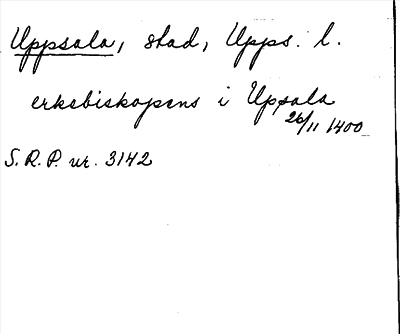 Uppsala, stad, Upps. l.
erkebiskopens i Uppsala
26/11 1400
S. R. P. nr. 3142